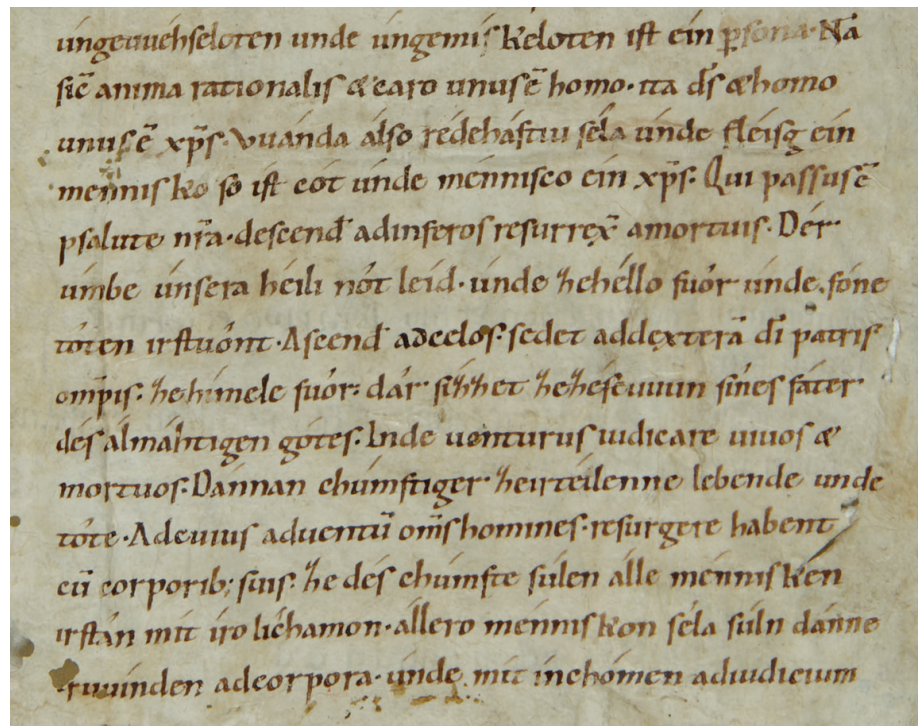 ungeuuehseloten unde ungemiskeloten ist ein psona· Nā
sic̄ anima rationalis & caro unus ē homo· ita d̄s & homo
unus ē xp̄s· Vuánda álso rédeháftiu séla únde fléisg ein
ménnisko só ist cót únde ménnisco ein xp̄s· Qui passus ē
p salute nr̄a· descend̄ ad inferos resurrex̄ a mortuis· Dér
úmbe únsera héili nót leid· únde ꜩe héllo fuór únde fóne
tóten irstuónt· Ascend̄ ad celos· sedet ad dexterā dī patris
om̄pis· ꜩe hímele fuór· dár síꜩꜩet ꜩe zéseuuun sínes fáter
dés álmáhtigen gótes· Inde uenturus iudicare uiuos &
mortuos· Dánnan chúmftiger· ꜩe irtéilenne lebende unde
tóte· Ad cuius aduentū om̄s homines· resurgere habent
cū corporib; suis· ꜩe dés chúmfte súlen álle ménnisken
irstán mit íro líchamon· állero ménniskon séla súln dánne
iruuinden ad corpora· únde mit in chómen ad iudicium